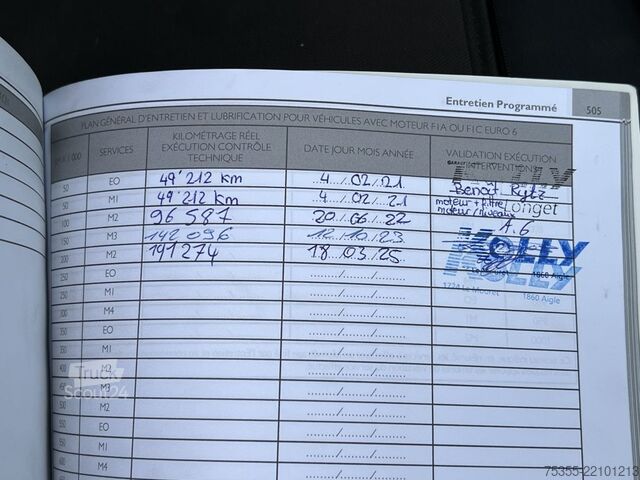 Entretien Programmé 505
PLAN GÉNÉRAL D'ENTRETIEN ET LUBRIFICATION POUR VÉHICULES AVEC MOTEUR F1A OU F1C EURO 6
SERVICES KILOMÉTRAGE RÉEL EXÉCUTION CONTRÔLE TECHNIQUE DATE JOUR MOIS ANNÉE VALIDATION EXÉCUTION INTERVENTION
50 EO 49'212 km 4/02/21 Benoit Rytz
50 M1 49'212 km 4/02/21 moteur + filtre Longet
100 M2 96 587 20/06/22 A.6
150 M3 142 096 12/10/23 KOLLY
200 M2 191274 18/03/25 KOLLY
250 EO .../.../...
1724 Le Mouret 1860 Aigle
250 M1 .../.../...
1860 Aigle
300 M4 .../.../...
EO .../.../...
350 M1 .../.../...
400 M2 .../.../...
M3 .../.../...
500 M2 .../.../...
550 EO .../.../...
550 M1 .../.../...
600 M4 .../.../...
Truck
Scout24
75355-22101213